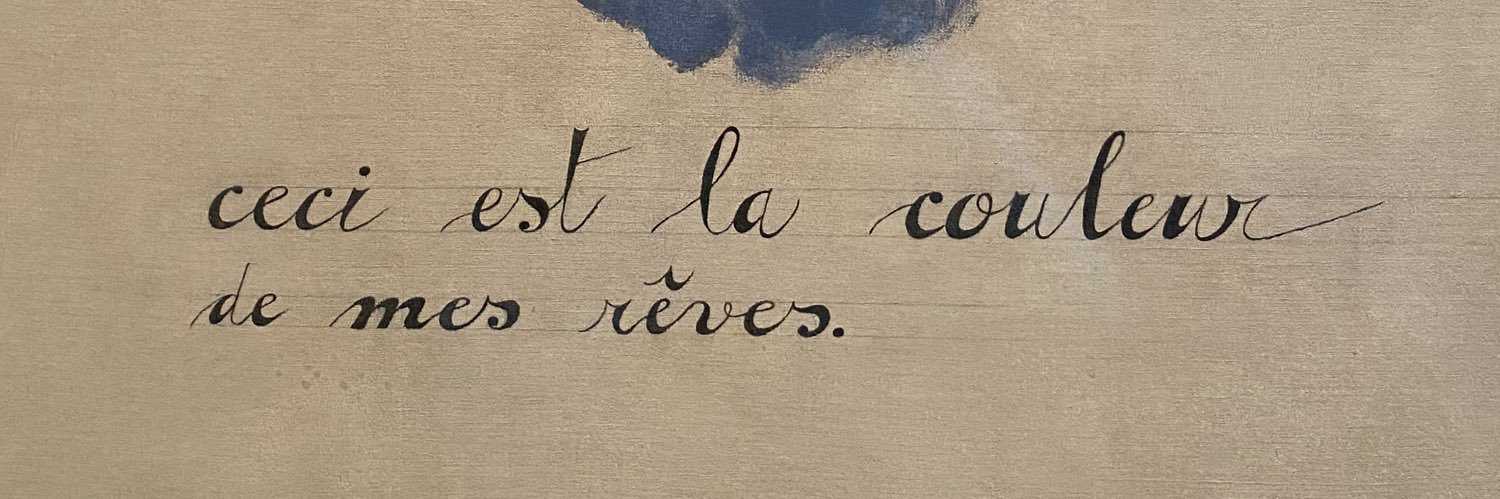 ceci est la couleur
de mes rêves.